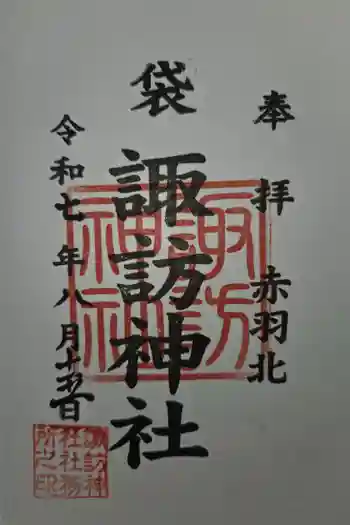 奉拝 赤羽北
袋
諏訪神社
令和七年八月十五日
諏訪神社
諏訪神社社務所之印